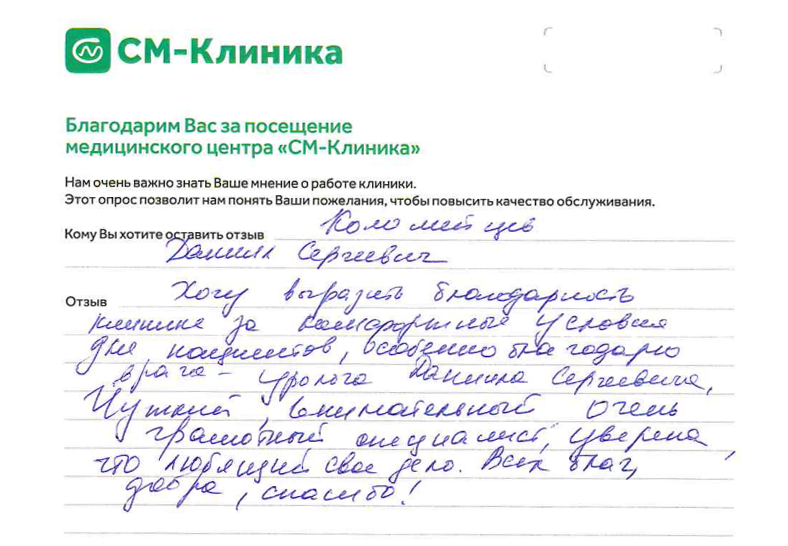 СМ-Клиника
Благодарим Вас за посещение
медицинского центра «СМ-Клиника»
Нам очень важно знать Ваше мнение о работе клиники.
Этот опрос позволит нам понять Ваши пожелания, чтобы повысить качество обслуживания.
Кому Вы хотите оставить отзыв Коломейцев
Даниил Сергеевич
Отзыв Хочу выразить благодарность
клинике за комфортные условия
для пациентов, особенно благодарю
врача - уролога Даниила Сергеевича,
Чуткий, внимательный очень
грамотный специалист, уверена,
что любящий свое дело. Всех благ,
добра, спасибо!